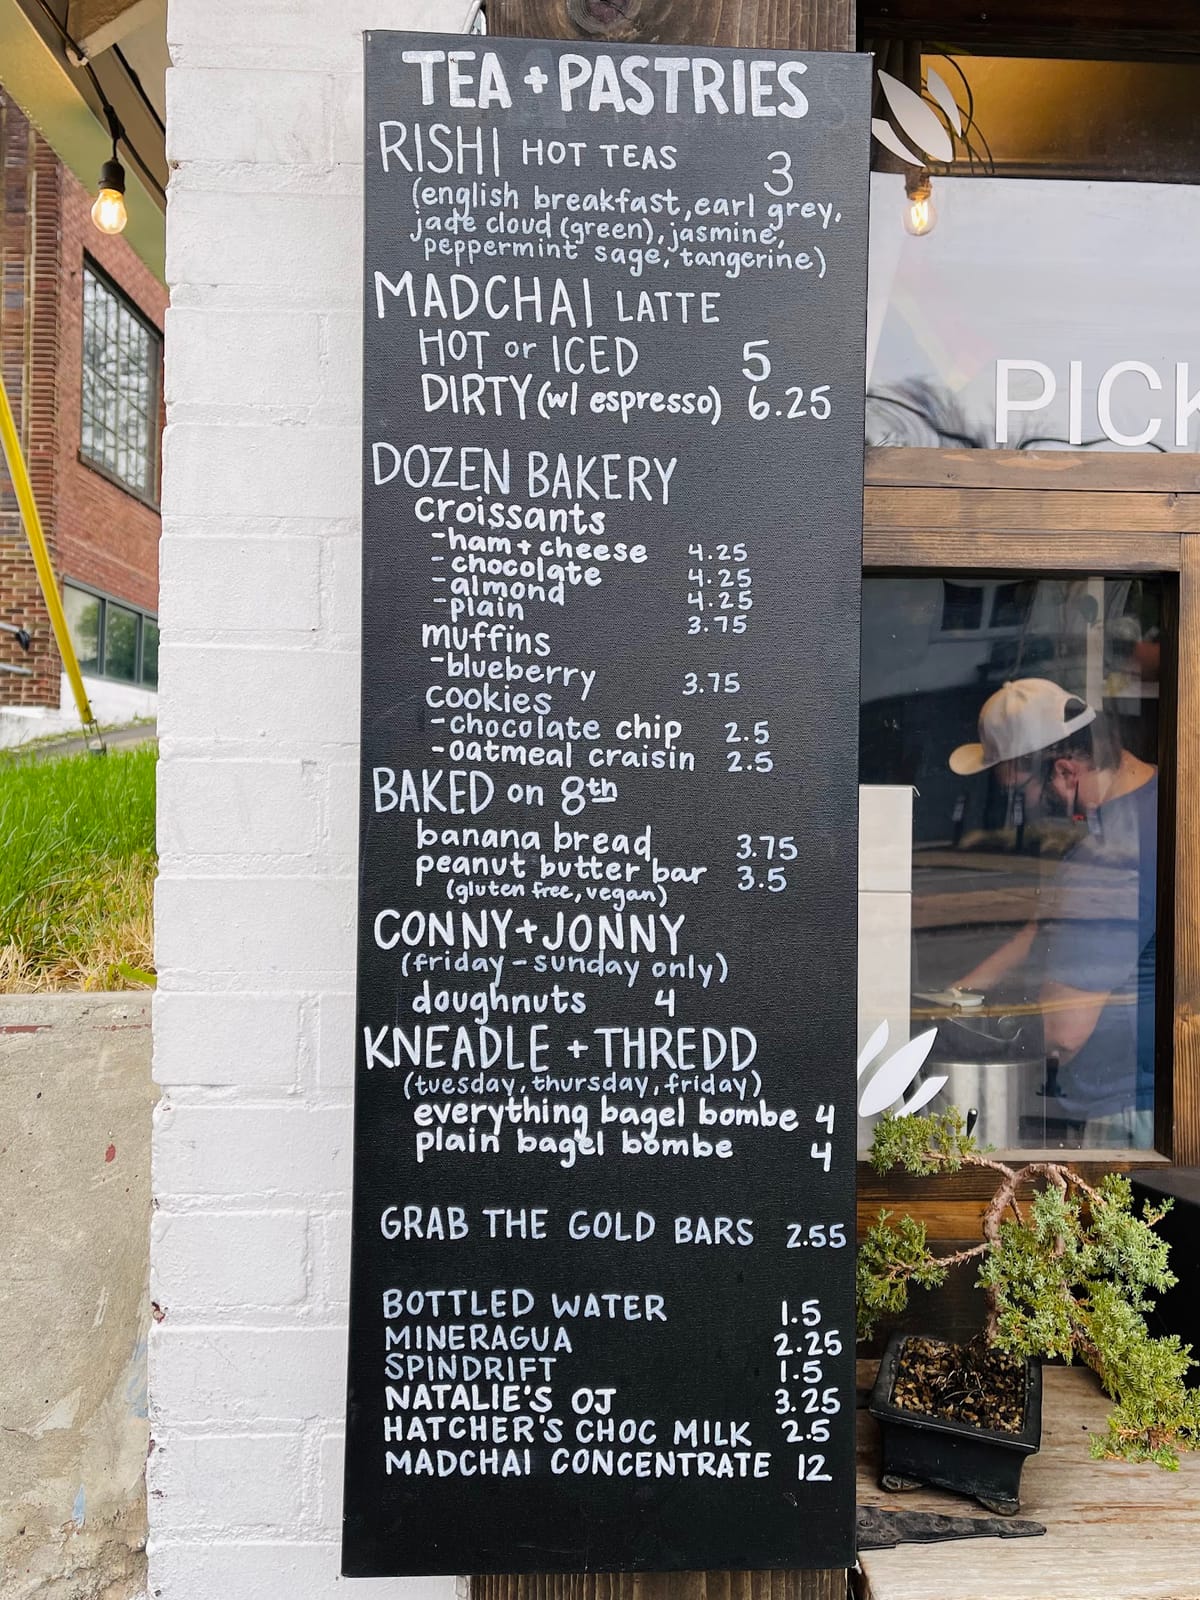 TEA + PASTRIES
RISHI HOT TEAS 3
(english breakfast, earl grey,
jade cloud (green), jasmine,
peppermint sage, tangerine)
MADCHAI LATTE
HOT or ICED 5
DIRTY (w/ espresso) 6.25
DOZEN BAKERY
croissants
-ham + cheese 4.25
-chocolate 4.25
-almond 4.25
-plain 3.75
muffins
-blueberry 3.75
cookies
-chocolate chip 2.5
-oatmeal craisin 2.5
BAKED on 8th
banana bread 3.75
peanut butter bar 3.5
(gluten free, vegan)
CONNY + JONNY
(friday - sunday only)
doughnuts 4
KNEADLE + THREDD
(tuesday, thursday, friday)
everything bagel bombe 4
plain bagel bombe 4
GRAB THE GOLD BARS 2.55
BOTTLED WATER 1.5
MINERAGUA 2.25
SPINDRIFT 1.5
NATALIE'S OJ 3.25
HATCHER'S CHOC MILK 2.5
MADCHAI CONCENTRATE 12
PICK